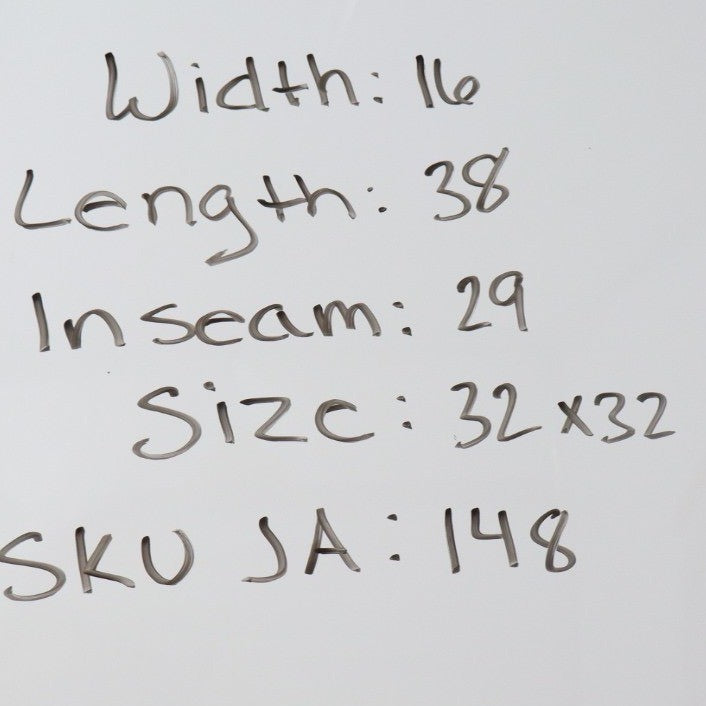 Width: 16
Length: 38
Inseam: 29
Size: 32x32
SKU JA: 148